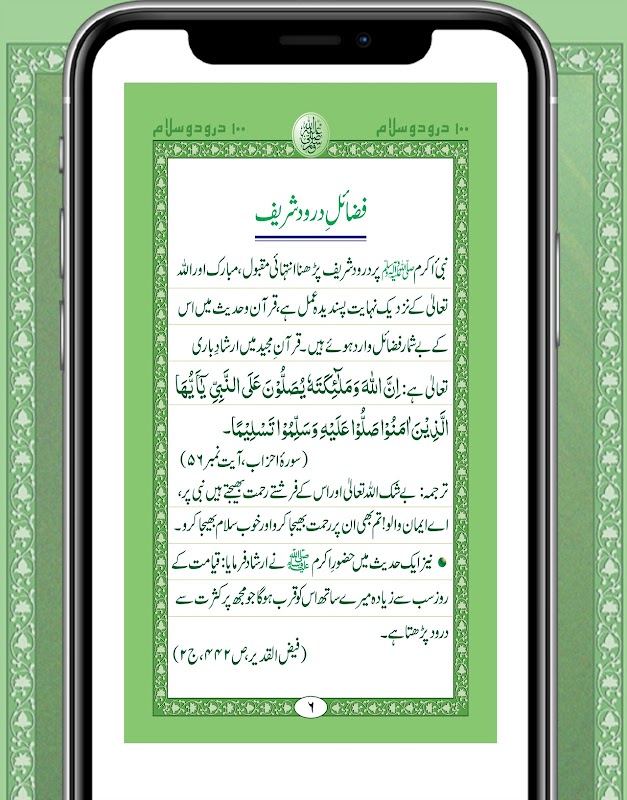 ۱۰۰ درود و سلام
۱۰۰ درود و سلام
فضائلِ درود شریف
نبیٔ اکرم ﷺ پر درود شریف پڑھنا انتہائی مقبول، مبارک اور اللہ
تعالیٰ کے نزدیک نہایت پسندیدہ عمل ہے، قرآن و حدیث میں اس
کے بے شمار فضائل وارد ہوئے ہیں۔ قرآنِ مجید میں ارشادِ باری
تعالیٰ ہے: اِنَّ اللّٰهَ وَمَلٰٓئِكَتَهٗ يُصَلُّوْنَ عَلَى النَّبِيِّ يٰٓاَيُّهَا
الَّذِيْنَ اٰمَنُوْا صَلُّوْا عَلَيْهِ وَسَلِّمُوْا تَسْلِيْمًا۔
(سورۂ احزاب، آیت نمبر ۵۶)
ترجمہ: بے شک اللہ تعالیٰ اور اس کے فرشتے رحمت بھیجتے ہیں نبی پر،
اے ایمان والو! تم بھی ان پر رحمت بھیجا کرو اور خوب سلام بھیجا کرو۔
نیز ایک حدیث میں حضورِ اکرم ﷺ نے ارشاد فرمایا: قیامت کے
روز سب سے زیادہ میرے ساتھ اس کو قرب ہوگا جو مجھ پر کثرت سے
درود پڑھتا ہے۔
(فیض القدیر، ص ۴۴۲، ج ۲)
۶